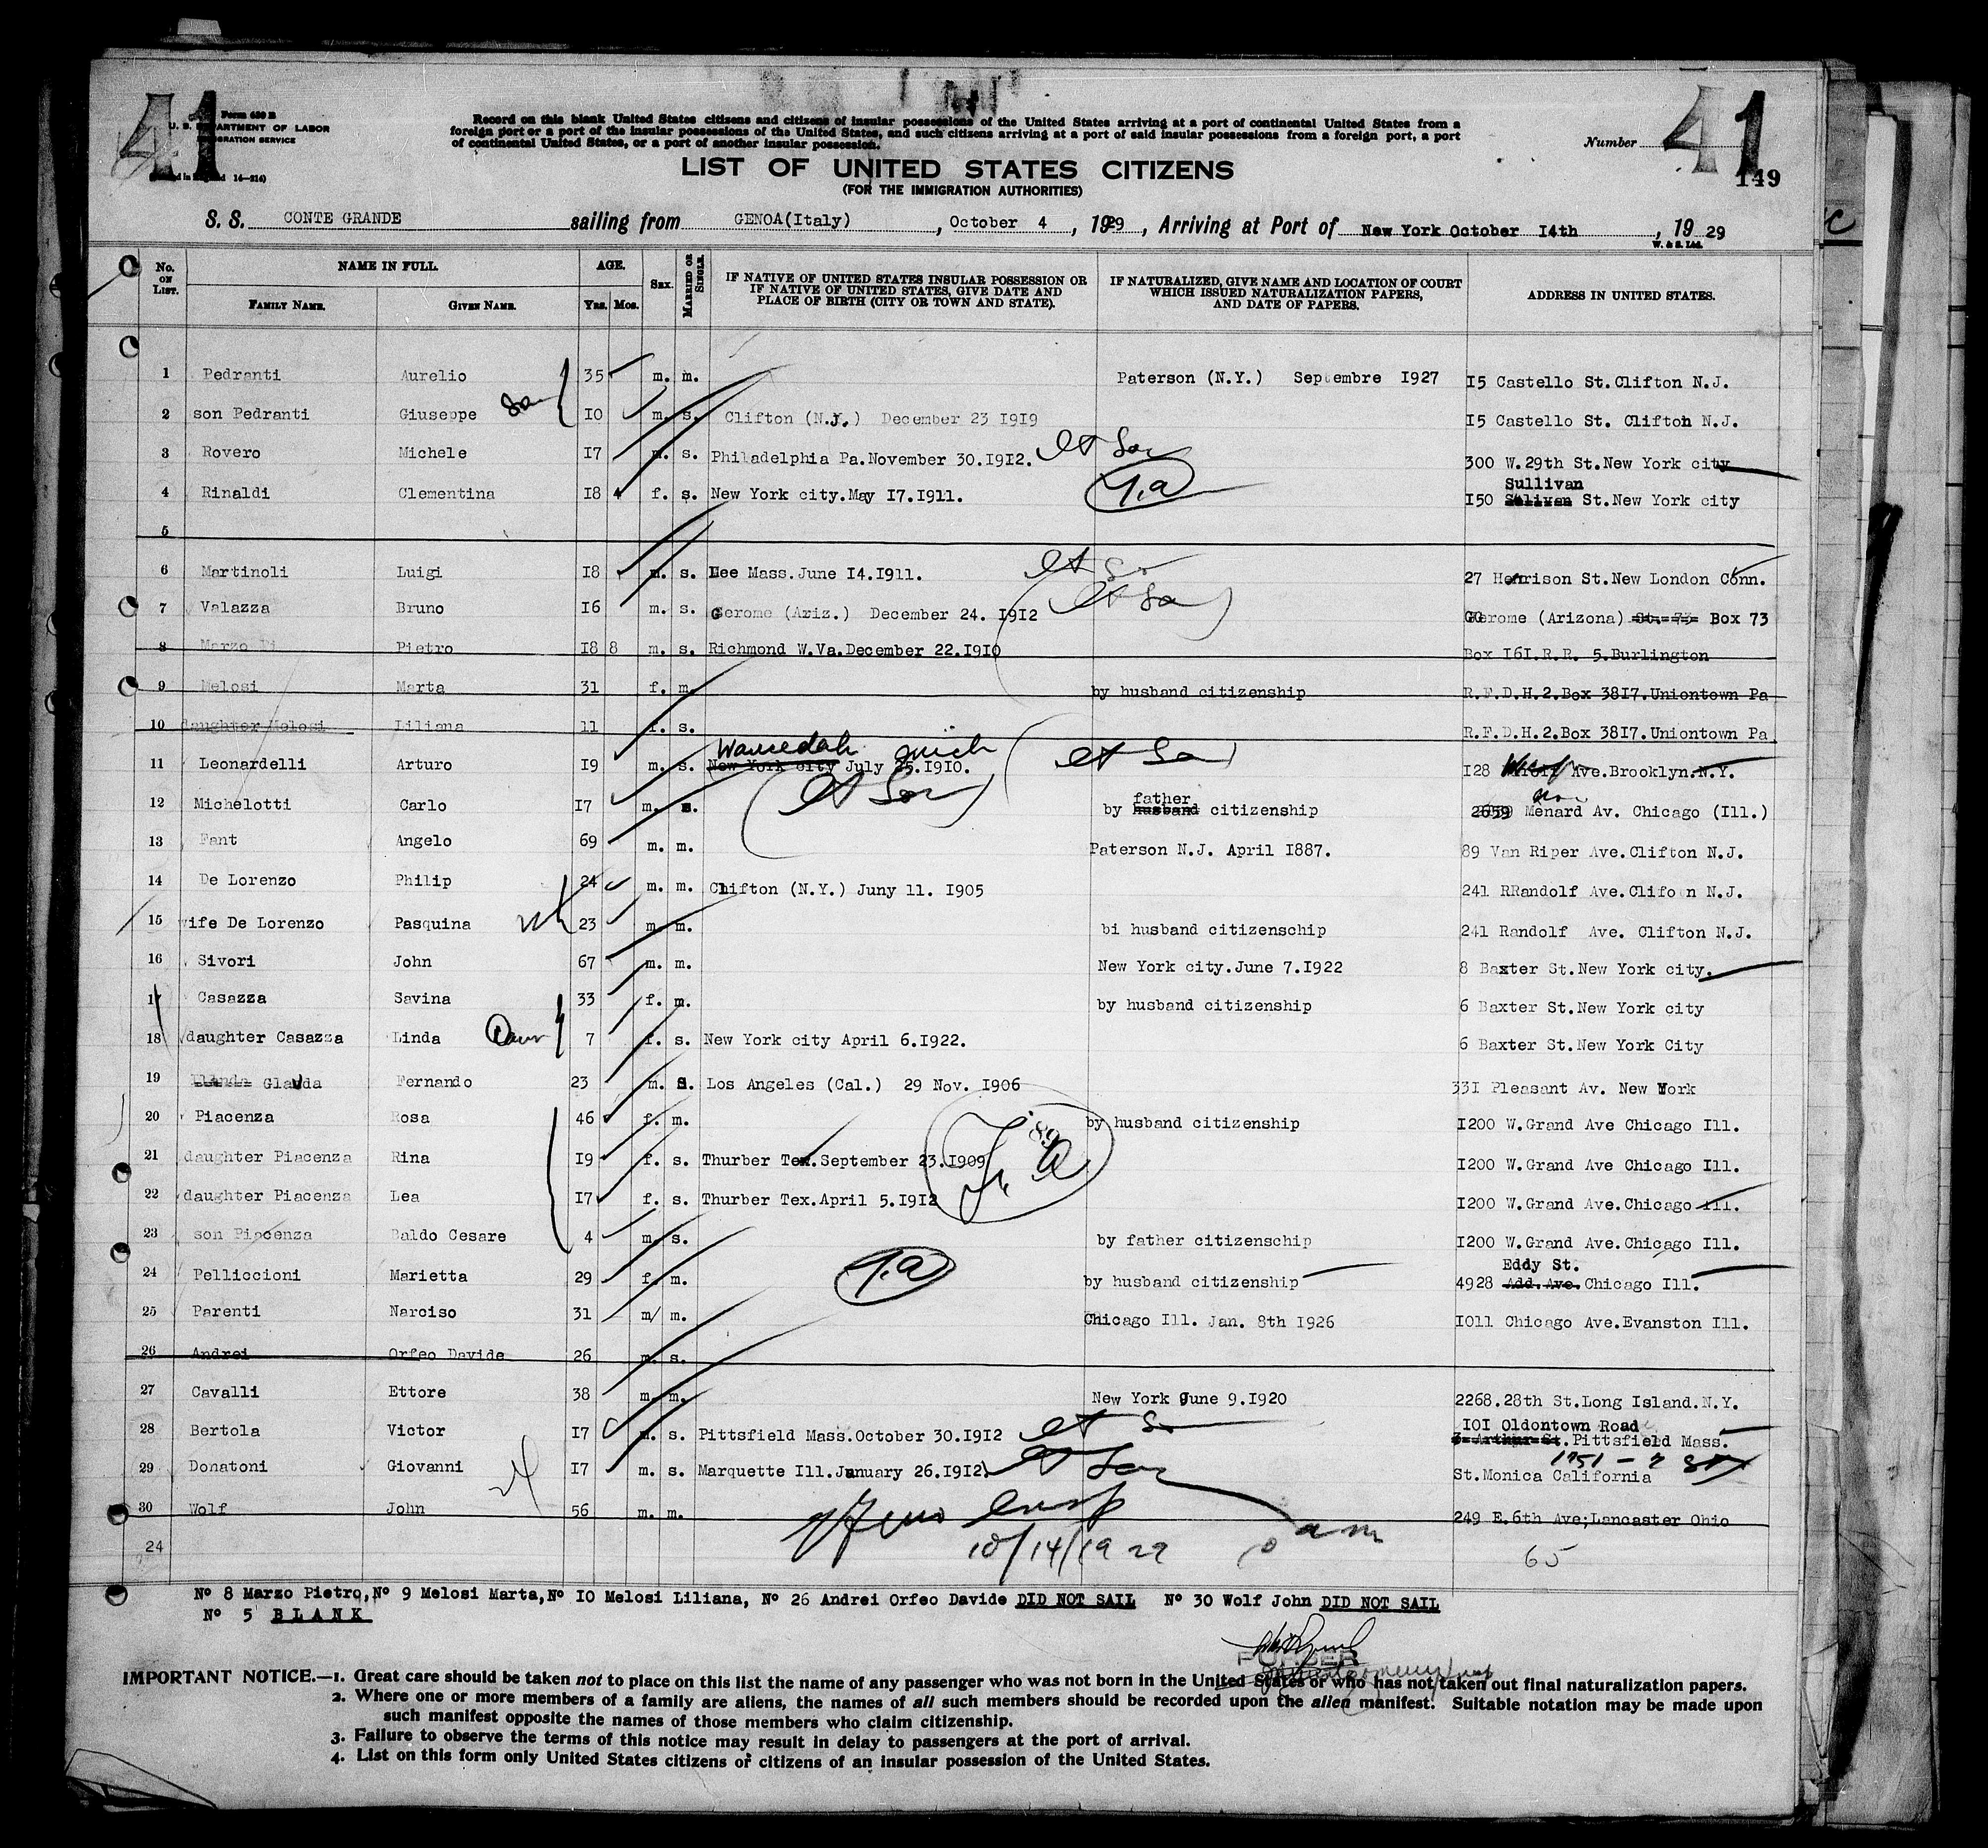 41
41
Form 630 B
U. S. DEPARTMENT OF LABOR
IMMIGRATION SERVICE
14—214)
Record on this blank United States citizens and citizens of insular possessions of the United States arriving at a port of continental United States from a
foreign port or a port of the insular possessions of the United States, and such citizens arriving at a port of said insular possessions from a foreign port, a port
of continental United States, or a port of another insular possession.
Number
149
LIST OF UNITED STATES CITIZENS
(FOR THE IMMIGRATION AUTHORITIES)
S. S. CONTE GRANDE sailing from GENOA(Italy), October 4, 1929, Arriving at Port of New York October I4th, 1929
W. & S. Ltd.
No. ON LIST. NAME IN FULL. AGE. SEX. MARRIED OR SINGLE. IF NATIVE OF UNITED STATES INSULAR POSSESSION OR IF NATIVE OF UNITED STATES, GIVE DATE AND PLACE OF BIRTH (CITY OR TOWN AND STATE). IF NATURALIZED, GIVE NAME AND LOCATION OF COURT WHICH ISSUED NATURALIZATION PAPERS, AND DATE OF PAPERS. ADDRESS IN UNITED STATES.
FAMILY NAME. GIVEN NAME. Yrs. Mos.
1 Pedranti Aurelio 35 m. m. Paterson (N.Y.) Septembre I927 I5 Castello St.Clifton N.J.
2 son Pedranti Giuseppe I0 m. s. Clifton (N.J.) December 23 I9I9 I5 Castello St. Clifton N.J.
3 Rovero Michele I7 m. s. Philadelphia Pa.November 30.I9I2. 300 W.29th St.New York city
Sullivan
4 Rinaldi Clementina I8 4 f. s. New York city.May I7.I9II. I50 Sulivan St.New York city
5
6 Martinoli Luigi I8 m. s. Lee Mass.June I4.I9II. 27 Harrison St.New London Conn.
7 Valazza Bruno I6 m. s. Gerome (Ariz.) December 24. I9I2 Gerome (Arizona) St. 73 Box 73
8 Marzo Di Pietro I8 8 m. s. Richmond W.Va.December 22.I9I0 Box I6I.R.R. 5.Burlington
9 Melosi Marta 31 f. m. by husband citizenship R.F.D.H.2.Box 38I7.Uniontown Pa
10 daughter Melosi Liliana 11 f. s. R.F.D.H.2.Box 38I7.Uniontown Pa
Waucedah Mich
11 Leonardelli Arturo I9 m. s. New York city July 25.I9I0. I28 Ave.Brooklyn.N.Y.
father
12 Michelotti Carlo I7 m. s. by husband citizenship 2659 Menard Av. Chicago (Ill.)
13 Fant Angelo 69 m. m. Paterson N.J. April I887. 89 Van Riper Ave.Clifton N.J.
14 De Lorenzo Philip 24 m. m. Clifton (N.Y.) Juny 11. I905 241 RRandolf Ave.Clifo n N.J.
15 wife De Lorenzo Pasquina 23 m. m. bi husband citizenschip 241 Randolf Ave. Clifton N.J.
16 Sivori John 67 m. m. New York city.June 7.I922 8 Baxter St.New York city.
17 Casazza Savina 33 f. m. by husband citizenship 6 Baxter St.New York city
18 daughter Casazza Linda 7 f. s. New York city April 6.I922. 6 Baxter St.New York City
19 Glauda Fernando 23 m. s. Los Angeles (Cal.) 29 Nov. I906 33I Pleasant Av. New York
20 Piacenza Rosa 46 f. m. by husband citizenship I200 W.Grand Ave Chicago Ill.
21 daughter Piacenza Rina I9 f. s. Thurber Tex.September 23.I909 I200 W.Grand Ave Chicago Ill.
22 daughter Piacenza Lea I7 f. s. Thurber Tex.April 5.I9I2 I200 W.Grand Ave.Chicago Ill.
23 son Piacenza Baldo Cesare 4 m. s. by father citizenschip I200 W.Grand Ave.Chicago Ill.
Eddy St.
24 Pelliccioni Marietta 29 f. m. by husband citizenship 4928 Add.Ave. Chicago Ill.
25 Parenti Narciso 31 m/ m. Chicago Ill. Jan. 8th I926 I0II Chicago Ave.Evanston Ill.
26 Andrei Orfeo Davide 26 m. s.
27 Cavalli Ettore 38 m m. New York June 9.I920 2268.28th St.Long Island.N.Y.
I0I Oldontown Road
28 Bertola Victor I7 m. s. Pittsfield Mass.October 30.I9I2 3 Arthur St.Pittsfield Mass.
29 Donatoni Giovanni I7 m. s. Marquette Ill.January 26.I9I2. St.Monica California
30 Wolf John 56 m. m. 249 E.6th Ave;Lancaster Ohio
24 10/14/1929 65
Nº 8 Marzo Pietro,Nº 9 Melosi Marta,Nº I0 Melosi Liliana, Nº 26 Andrei Orfeo Davide DID NOT SAIL Nº 30 Wolf John DID NOT SAIL
Nº 5 BLANK
PURSER
IMPORTANT NOTICE.—1. Great care should be taken not to place on this list the name of any passenger who was not born in the United States or who has not taken out final naturalization papers.
2. Where one or more members of a family are aliens, the names of all such members should be recorded upon the alien manifest. Suitable notation may be made upon
such manifest opposite the names of those members who claim citizenship.
3. Failure to observe the terms of this notice may result in delay to passengers at the port of arrival.
4. List on this form only United States citizens or citizens of an insular possession of the United States.